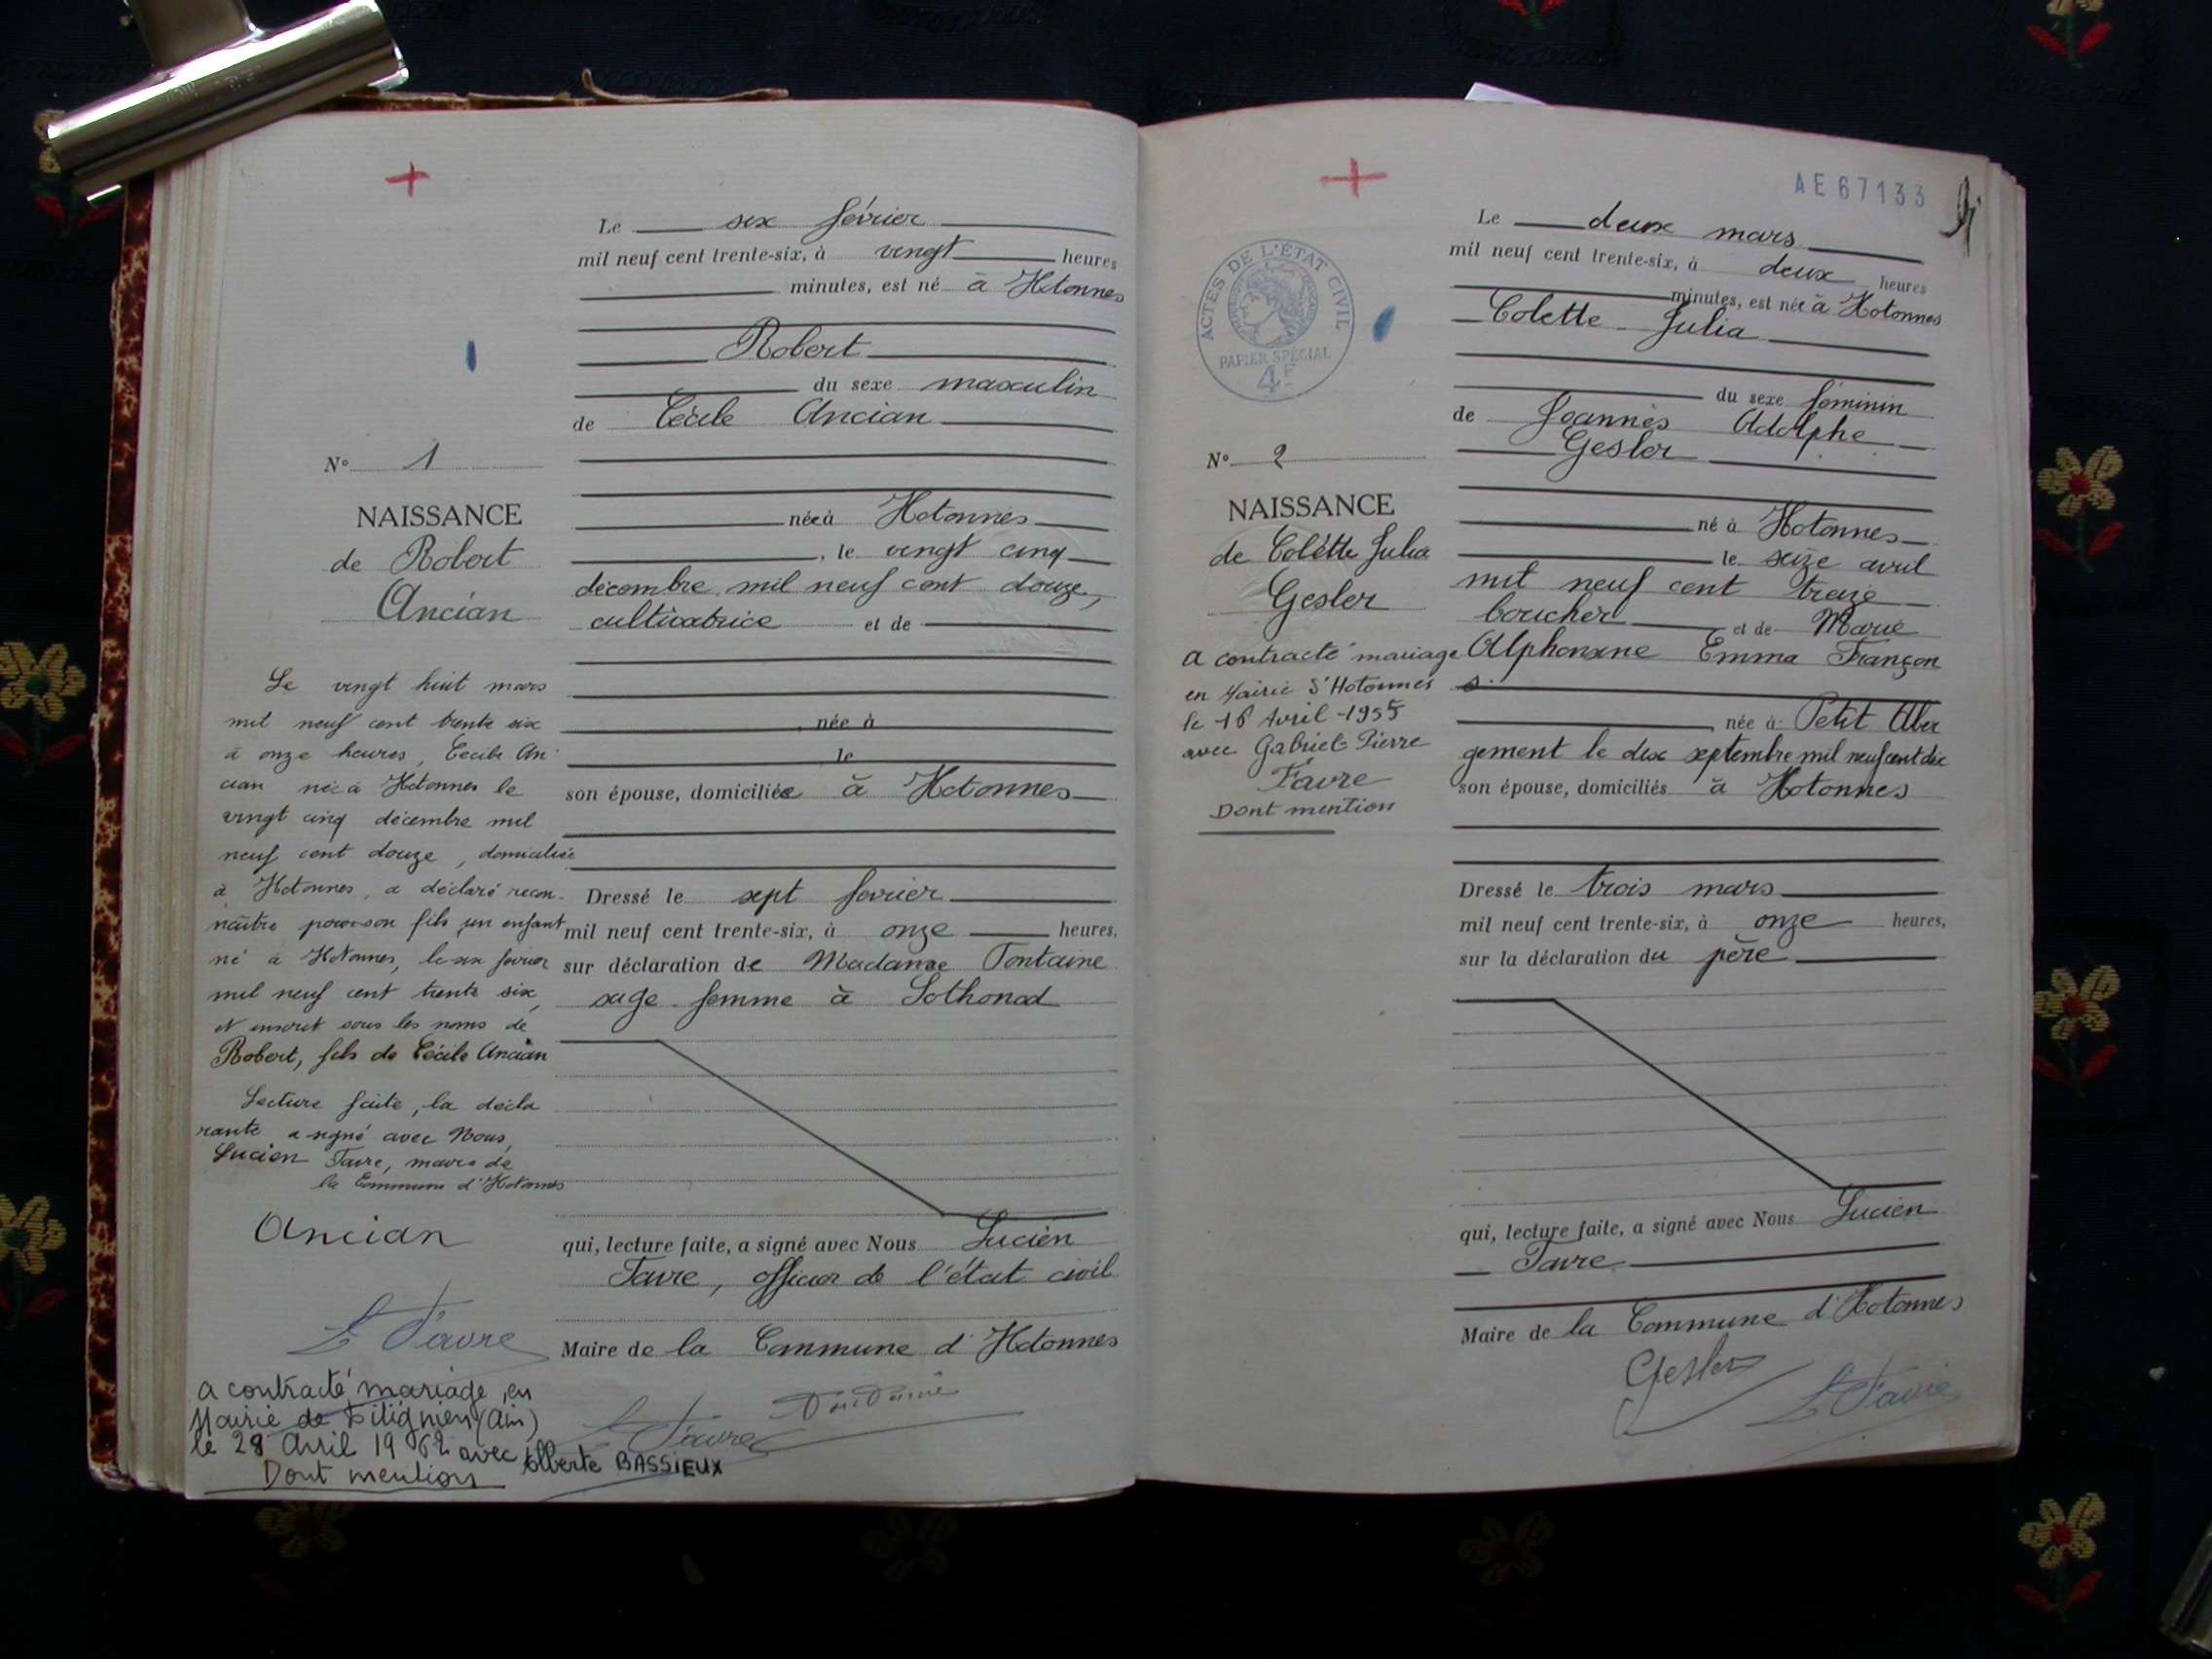 Le six février
mil neuf cent trente-six, à vingt heures
minutes, est né à Hotonnes
Robert
du sexe masculin
de Cécile Ancian
N° 1
NAISSANCE
de Robert
Ancian
née à Hotonnes
, le vingt cinq
décembre mil neuf cent douze,
cultivatrice et de
née à
le
son épouse, domiciliée à Hotonnes
Dressé le sept février
mil neuf cent trente-six, à onze heures,
sur déclaration de Madame Fontaine
sage femme à Sothonod
qui, lecture faite, a signé avec Nous Lucien
Favre, officier de l'état civil
Maire de la Commune d'Hotonnes
L Favre
Le vingt huit mars
mil neuf cent trente six
à onze heures, Cécile An
cian née à Hotonnes le
vingt cinq décembre mil
neuf cent douze, domiciliée
à Hotonnes, a déclaré recon-
naître pour son fils un enfant
né à Hotonnes, le six février
mil neuf cent trente six,
et inscrit sous les noms de
Robert, fils de Cécile Ancian
Lecture faite, la décla
rante a signé avec Nous,
Lucien Favre, maire de
la Commune d'Hotonnes
Ancian
L Favre
a contracté mariage en
Mairie de (Ain)
le 28 Avril 1962 avec Alberte BASSIEUX
Dont mention
AE67133
Le deux mars
mil neuf cent trente-six, à deux heures
minutes, est née à Hotonnes
Colette Julia
du sexe féminin
de Joannès Adolphe
Gesler
ACTES DE L'ÉTAT CIVIL
PAPIER SPÉCIAL
4F
N° 2
NAISSANCE
de Colette Julia
Gesler
a contracté mariage
en Mairie d'Hotonnes
le 16 Avril 1955
avec Gabriel Pierre
Favre
Dont mention
né à Hotonnes
le seize avril
mil neuf cent treize
boucher et de Marie
Alphonsine Emma Françon
née à Petit Aber
gement le dix septembre mil neuf cent dix
son épouse, domiciliés à Hotonnes
Dressé le trois mars
mil neuf cent trente-six, à onze heures,
sur la déclaration du père
qui, lecture faite, a signé avec Nous Lucien
Favre
Maire de la Commune d'Hotonnes
Gesler
L Favre